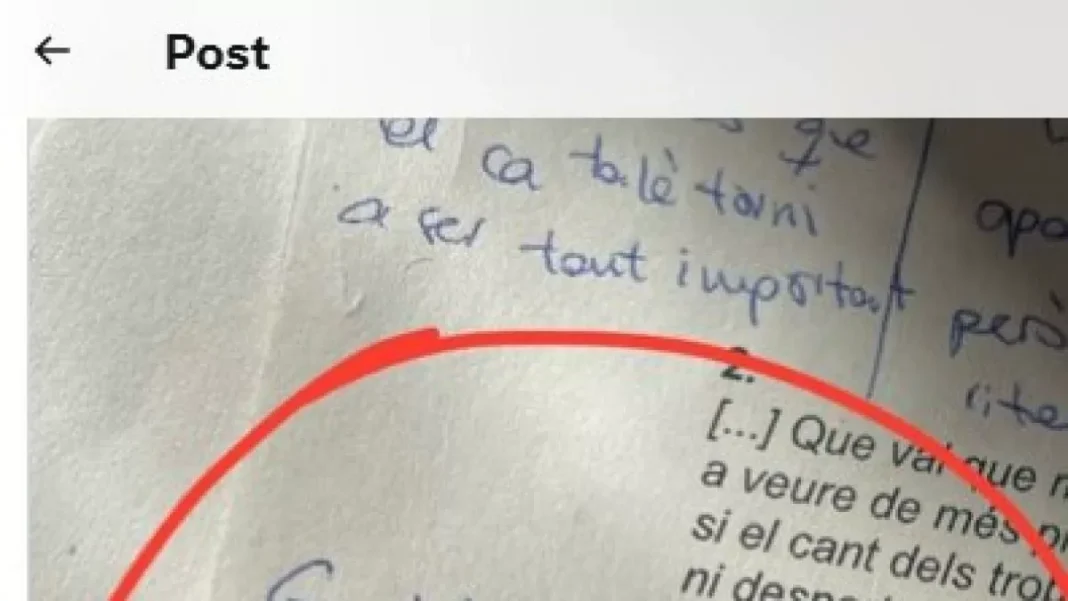 Post
el que
ca talè torni
a ser tant important
apo
però
2.
[...] Que val que
a veure de més
si el cant dels trou
ni desp